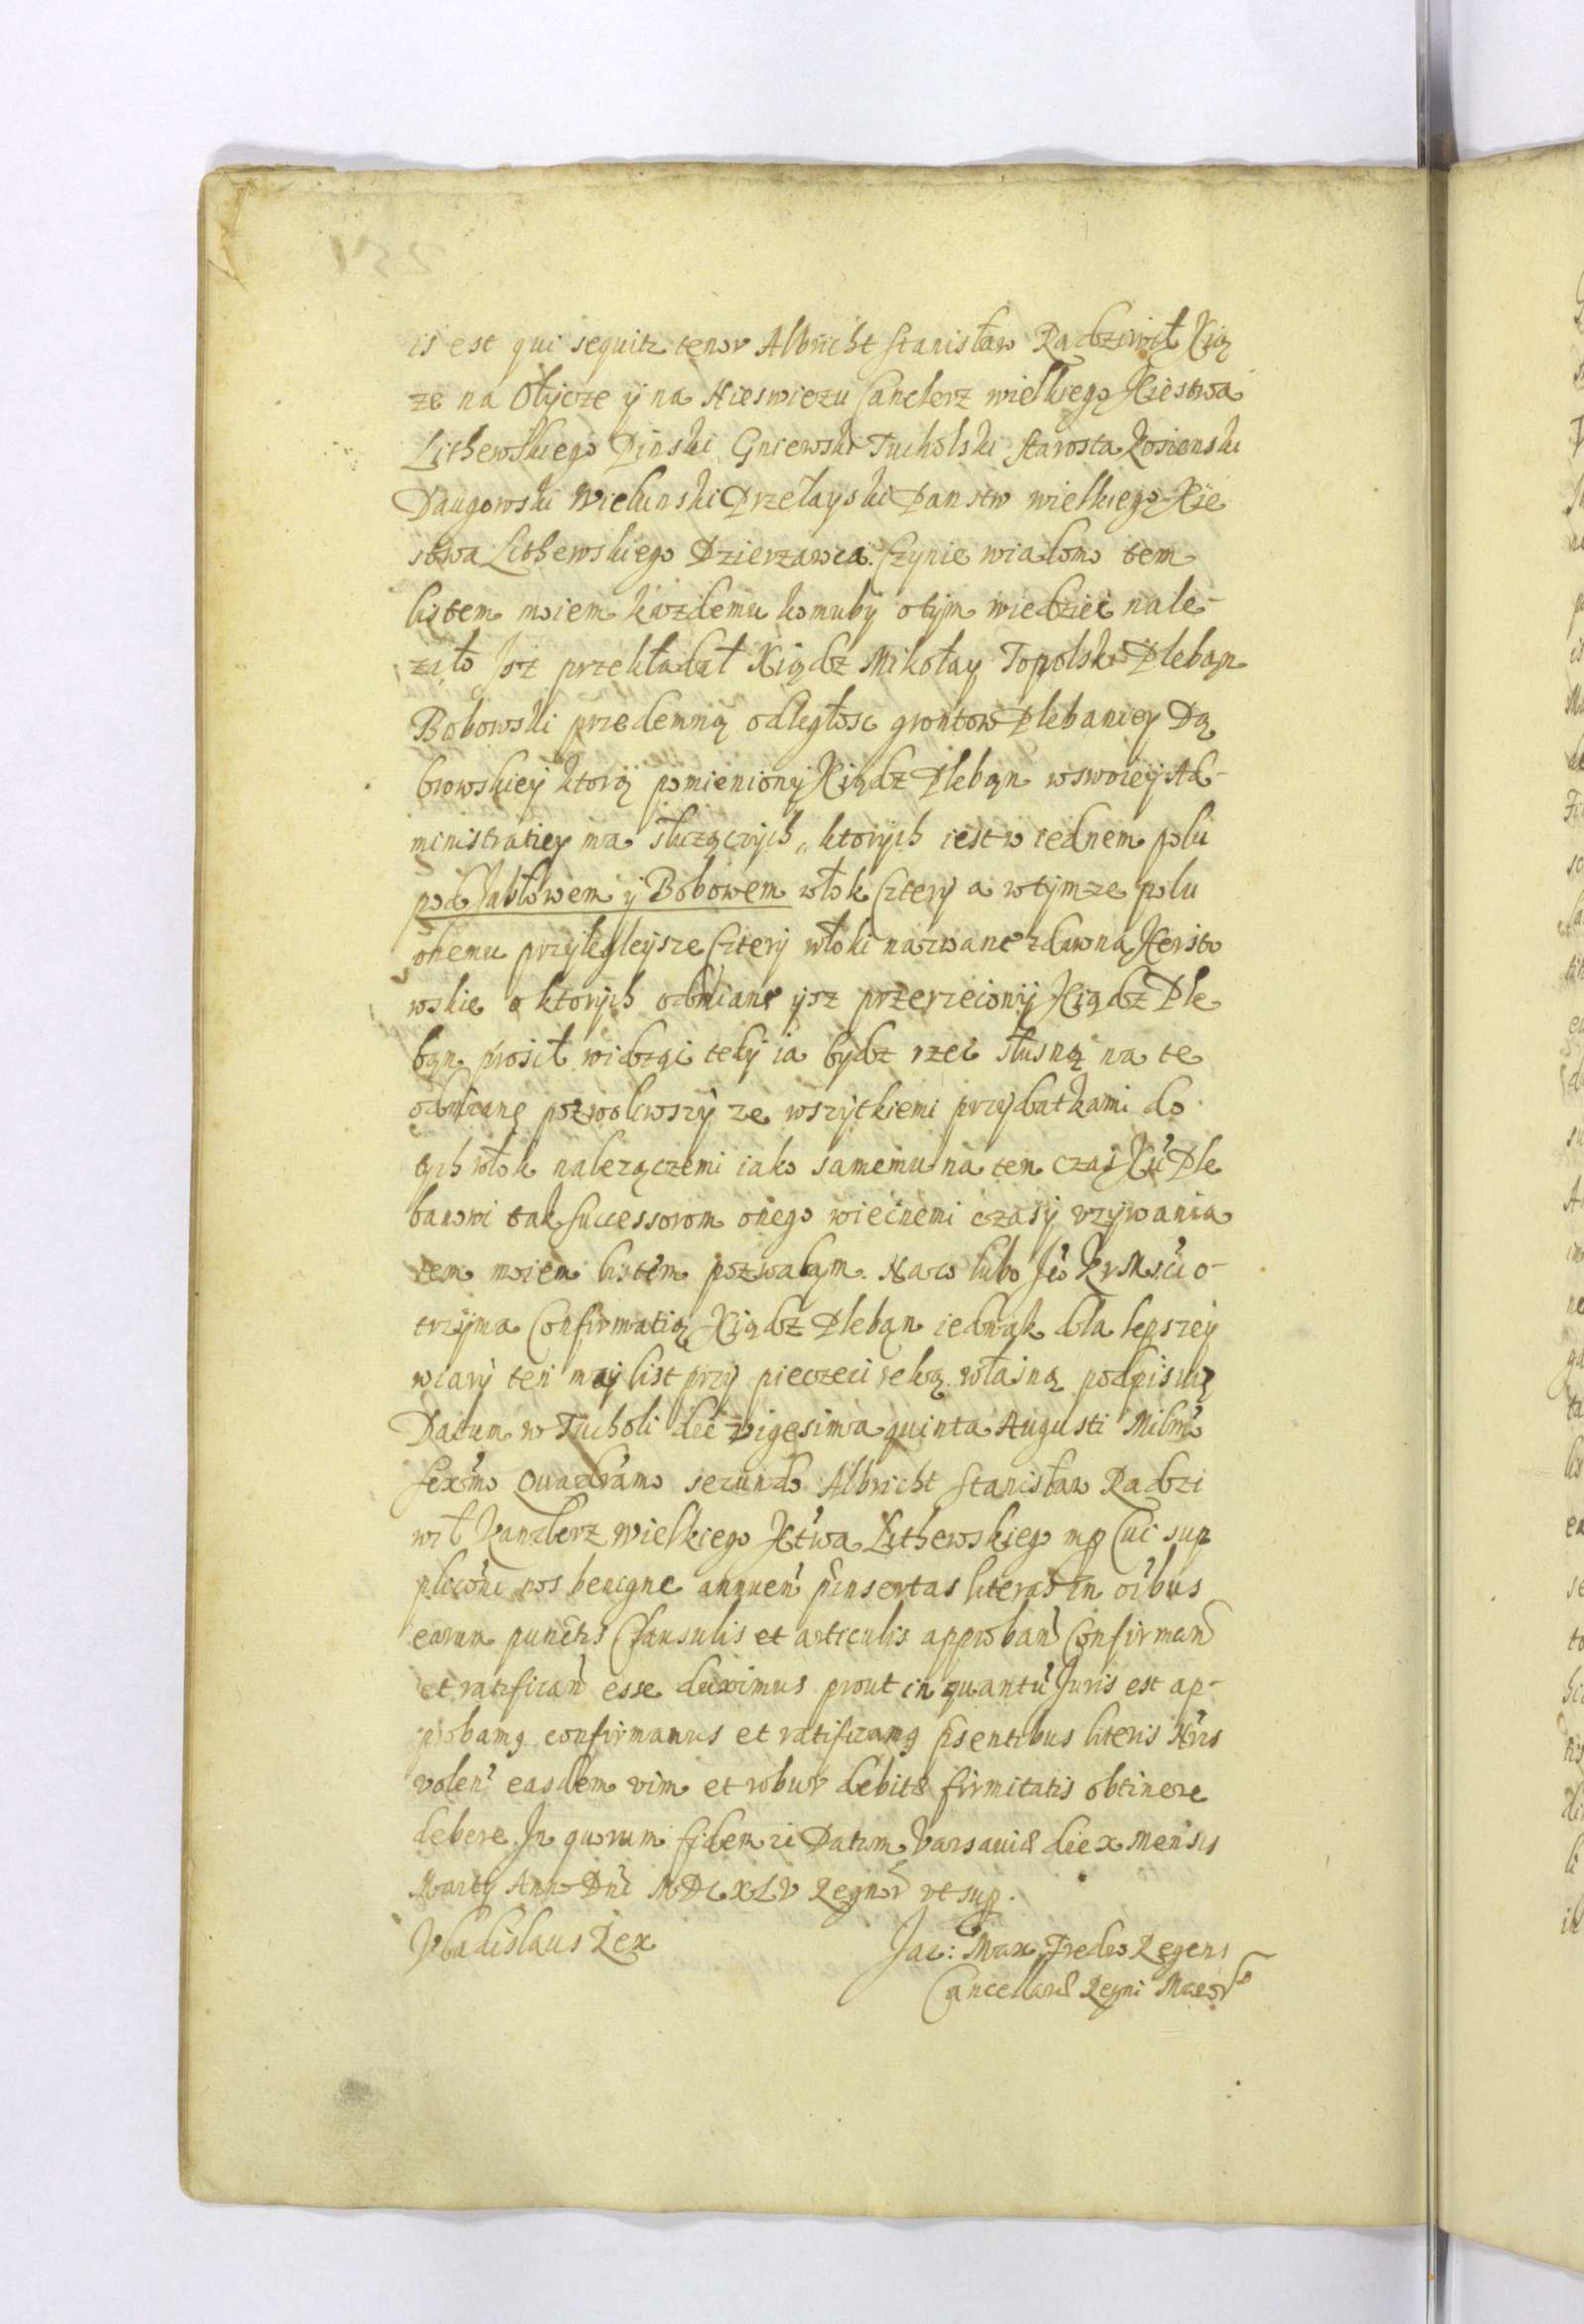 is est qui sequitr tenor Albricht Stanisław Radziwił Xią
ze na Ołycze y na Nieswiezu Canclerz wielkiego Xiestwa
Lithewskiego Pinski Gniewski Tucholski starosta Kosienski
Daugowski Wieluński Przełayski Panstw wielkiego Xię
stwa Lithewskiego Dzierzawca. Czynie wiadomo tem
listem moiem kazdemu komuby o tym wiedziec nale-
zało Isz przekładał Xiądz Mikołay Topolski Pleban
Bobowski przedemną odległosc grontow Plebaniey Dą
browskiey ktorą pomieniony Xiądz Pleban w swoiey Ad-
ministratiey ma słuzących, ktorych iest w iednem polu
pod Jabłowem y Bobowem włok Cztery a w tymze polu
onemu przyległeysze Cztery włoki nazwane zdawna
wskie o ktorych odmiane ysz przerzeciony Xiądz Ple
ban prosił widząc tedy ia bydz rzec słusną na te
odmianę pozwoliwszy ze wszytkiemi przydatkami do
tych włok nalezączemi iako samemu na ten czas Xu Ple
banowi tak Successorom onego wiecnemi czasy uzywania
tem moiem listem pozwalam. Na co lubo Jeo Kr Msci o-
trzyma Confirmatią Xiądz Pleban iednak dla lepszey
wiary ten moy list przy pieczeci ręką własną podpisuię
Datum w Tucholi die vigesima quinta Augusti Milmo
sexmo Quadramo secundo Albricht Stanisław Radzi
wił Kanclerz wielkiego Xtwa Lithewskiego mp Cui sup
plicõni nos benigne annuen pinsertas literas in oibus
earum punctis Clausulis et articulis approband Confirmand
et ratificand esse duximus prout in quantu Juris est ap-
probamq confirmamus et ratificamq psentibus literis Nris
volen easdem vim et robur debitæ firmitatis obtinere
debere. In quorum fidem ec Datum Varsaviæ die x Mensis
Marty Anno Dni MDCXLV Regnor ut sup.
Vladislaus Rex
Jac: Max Fredro Regens
Cancellariæ Regni